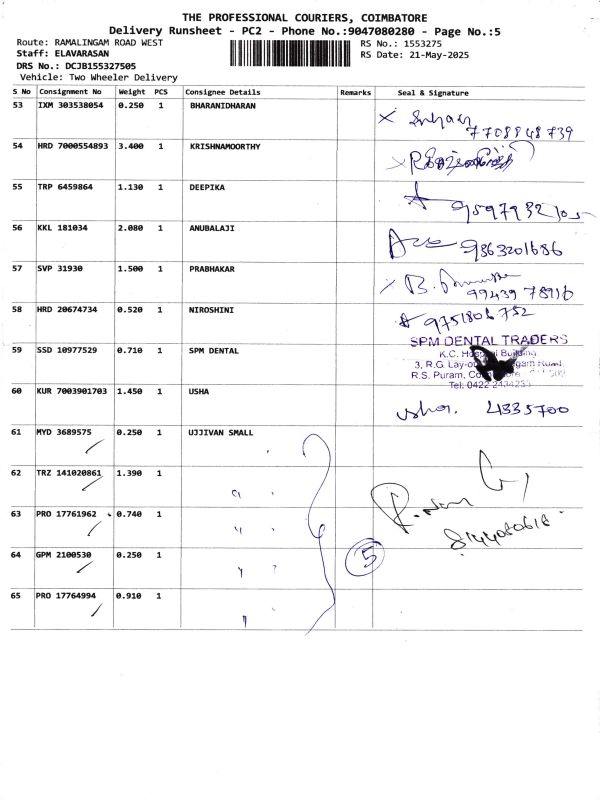 THE PROFESSIONAL COURIERS, COIMBATORE
Delivery Runsheet - PC2 - Phone No.:9047080280 - Page No.:5
Route: RAMALINGAM ROAD WEST
Staff: ELAVARASAN
DRS No.: DCJB155327505
Vehicle: Two Wheeler Delivery
RS No.: 1553275
RS Date.: 21-May-2025
S No Consignment No Weight PCS Consignee Details Remarks Seal & Signature
53 IXM 303538054 0.250 1 BHARANIDHARAN
7708848739
54 HRD 7000554893 3.400 1 KRISHNAMOORTHY
55 TRP 6459864 1.130 1 DEEPIKA
56 KKL 181034 2.080 1 ANUBALAJI
9363201686
57 SVP 31930 1.500 1 PRABHAKAR
99439 78916
58 HRD 20674734 0.520 1 NIROSHINI
9751806752
59 SSD 10977529 0.710 1 SPM DENTAL
SPM DENTAL TRADERS
K.C. Hospital Building
3, R.G. Lay-out
R.S. Puram,
Tel: 0422
60 KUR 7003901703 1.450 1 USHA
usha. 4335700
61 MYD 3689575 0.250 1 UJJIVAN SMALL
62 TRZ 141020861 1.390 1 " "
63 PRO 17761962 0.740 1 " "
64 GPM 2100530 0.250 1 " "
65 PRO 17764994 0.910 1 "
5
8144080618